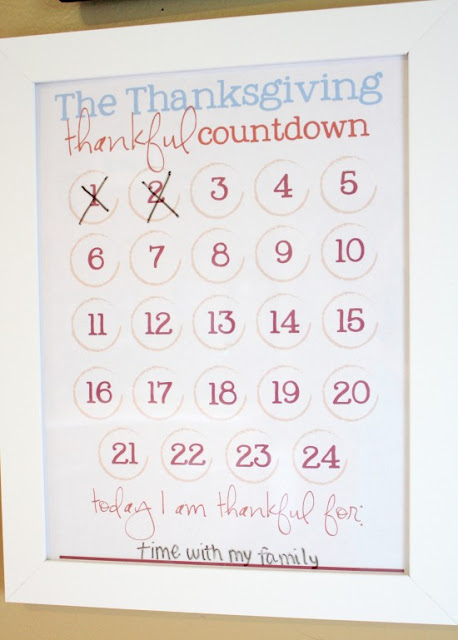 The Thanksgiving
thankful countdown
1 2 3 4 5
6 7 8 9 10
11 12 13 14 15
16 17 18 19 20
21 22 23 24
today I am thankful for:
time with my family